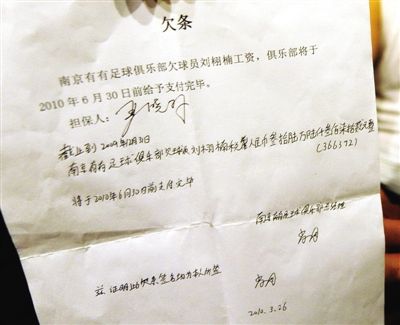 欠条
南京有有足球俱乐部欠球员刘栩楠工资，俱乐部将于
2010年6月30日前给予支付完毕。
担保人：
截止到2009年12月31日
南京有有足球俱乐部欠球员刘栩楠税后人民币叁拾陆万陆仟叁佰柒拾贰元整
(366372)
将于2010年6月30日前支付完毕
南京有有足球俱乐部总经理
兹证明此欠条签名均为本人所签
2010.3.26